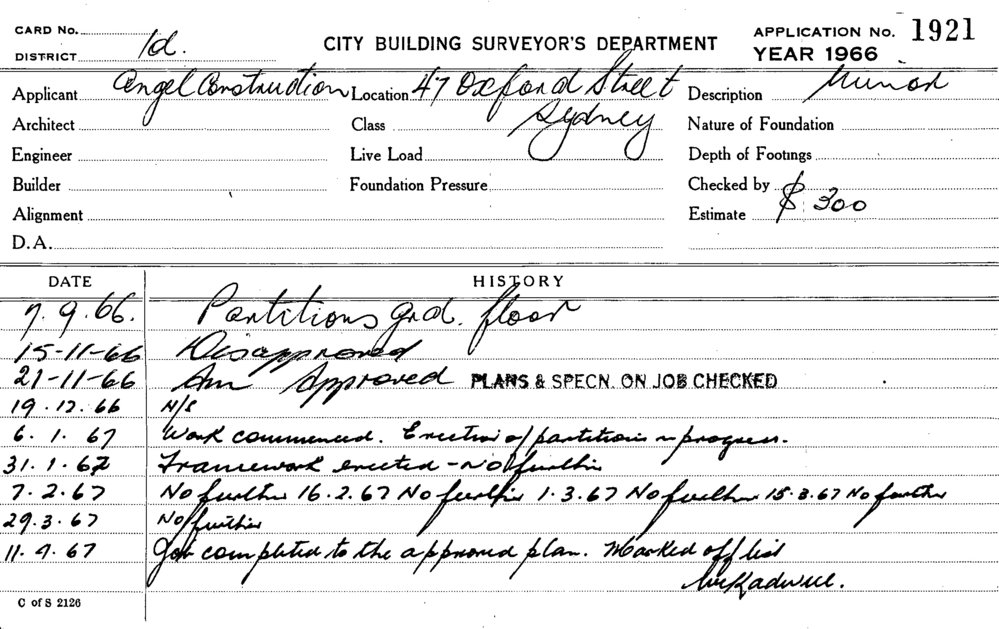 CARD No. APPLICATION No. 1921
DISTRICT 1d. CITY BUILDING SURVEYOR'S DEPARTMENT YEAR 1966
Applicant Angel Construction Location 47 Oxford Street Description Minor
Architect Class Sydney Nature of Foundation
Engineer Live Load Depth of Footings
Builder Foundation Pressure Checked by
Alignment Estimate $ 300
D.A.
DATE HISTORY
7.9.66. Partitions grd. floor
15-11-66 Disapproved
21-11-66 Am Approved PLANS & SPECN. ON JOB CHECKED
19.12.66 N/S
6.1.67 Work commenced. Erection of partitions in progress.
31.1.67 Framework erected - No further
7.2.67 No further 16.2.67 No further 1.3.67 No further 15.3.67 No further
29.3.67 No further
11.4.67 Job completed to the approved plan. Marked off list
C of S 2126